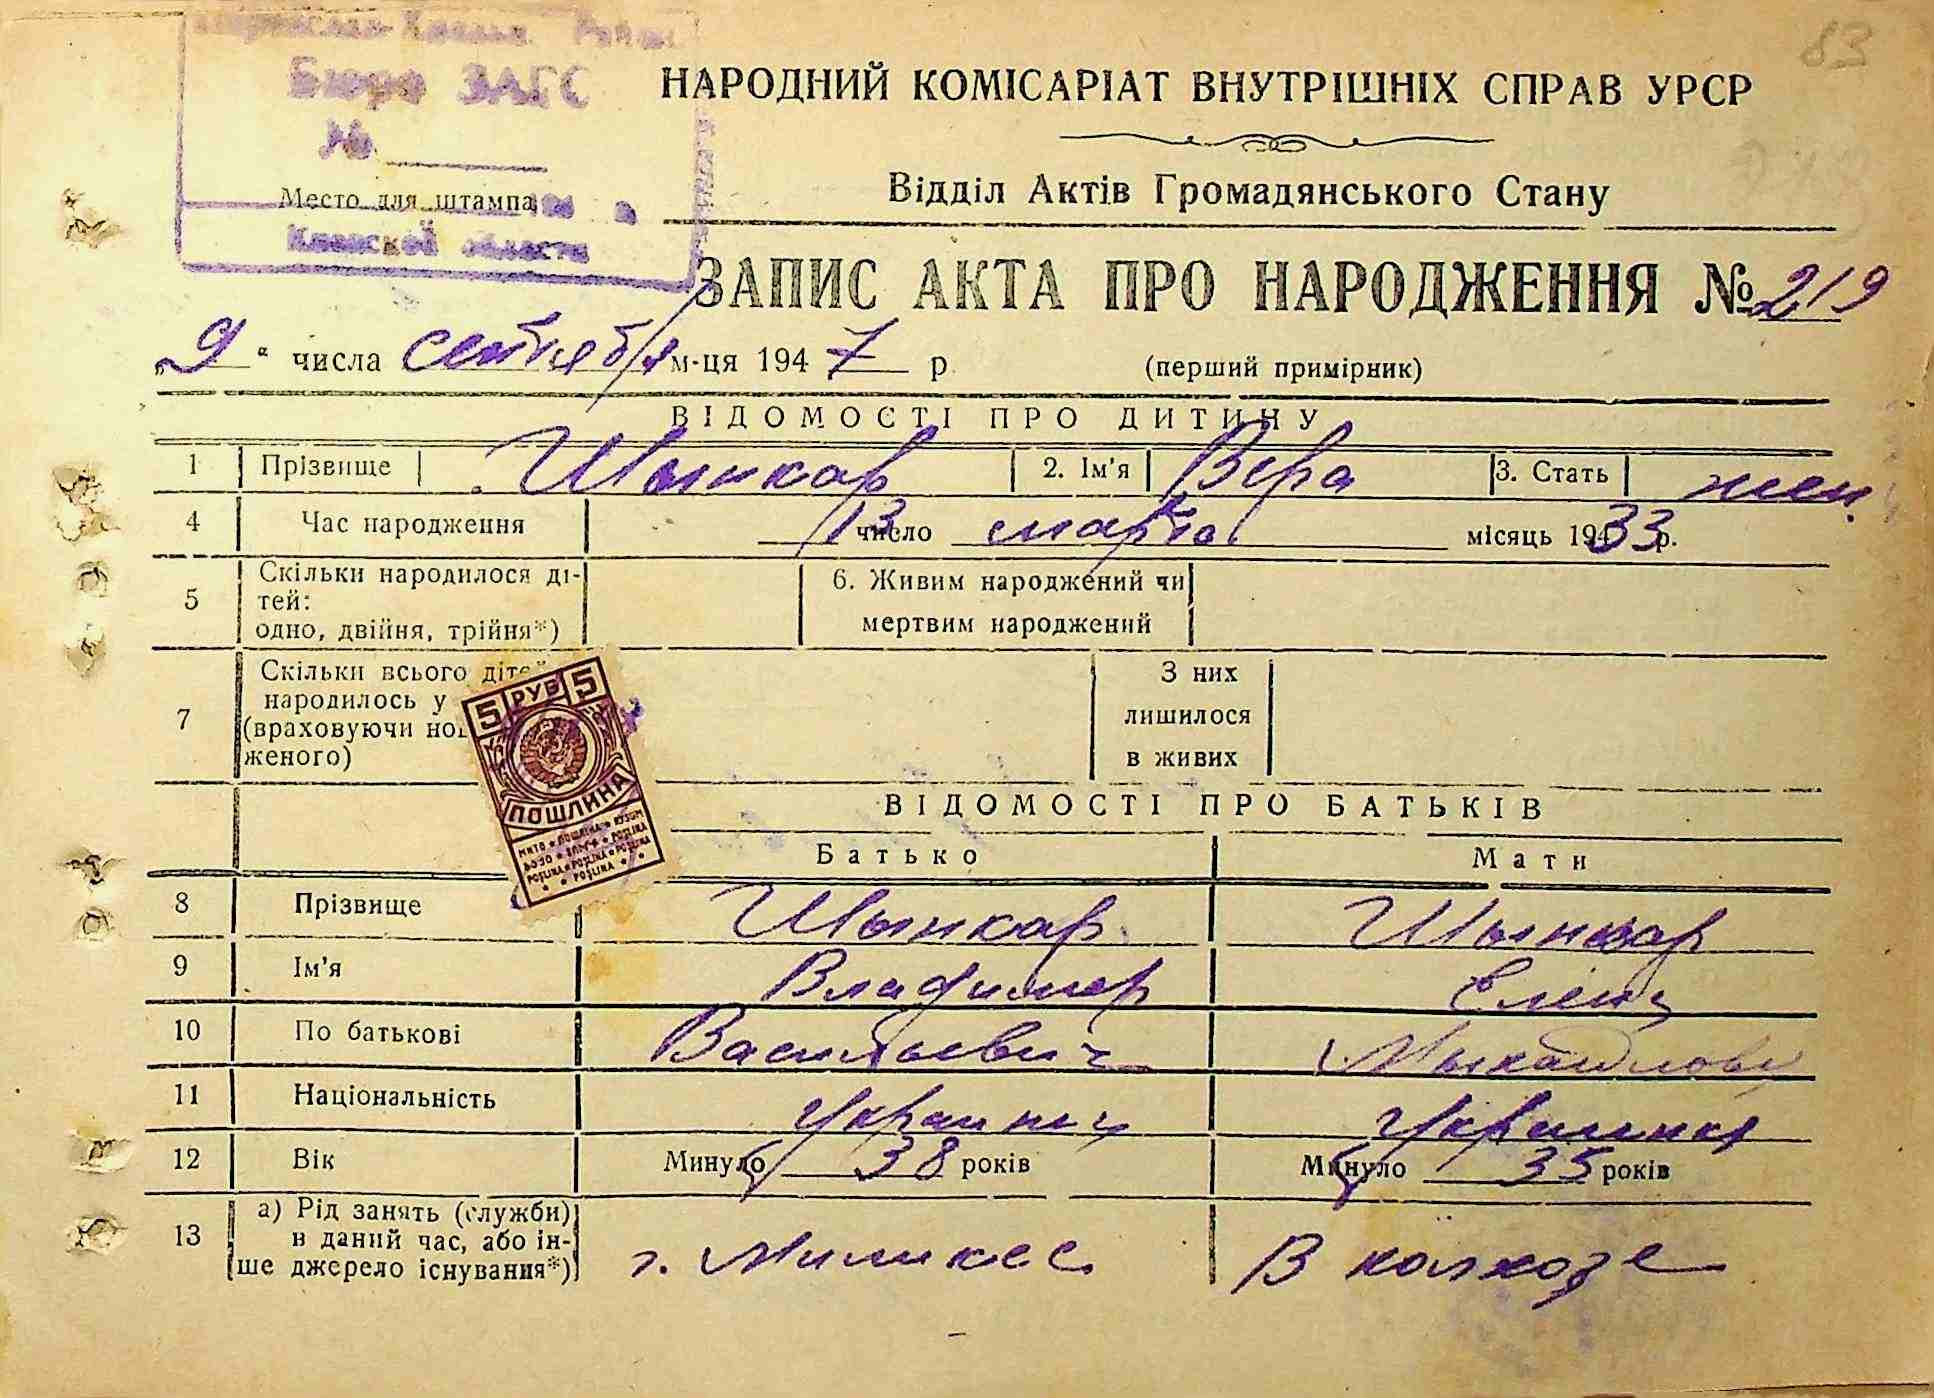 83
Бюро ЗАГС
№
НАРОДНИЙ КОМІСАРІАТ ВНУТРІШНІХ СПРАВ УРСР
Место для штампа
Відділ Актів Громадянського Стану
Киевской области
ЗАПИС АКТА ПРО НАРОДЖЕННЯ № 219
„9“ числа сентября м-ця 1947 р. (перший примірник)
ВІДОМОСТІ ПРО ДИТИНУ
1 Прізвище Шынкар 2. Ім'я Вера 3. Стать жен.
4 Час народження 13 число марта місяць 1933 р.
5 Скільки народилося ді-
тей:
одно, двійня, трійня*)
6. Живим народжений чи
мертвим народжений
7 Скільки всього діте
народилось у
(враховуючи но
женого)
З них
лишилося
в живих
5 РУБ 5
ПОШЛИНА
ВІДОМОСТІ ПРО БАТЬКІВ
Батько Мати
8 Прізвище Шынкар Шынкар
9 Ім'я Владимер Елена
10 По батькові Васильевич
11 Національність украинец украинка
12 Вік Минуло 38 років Минуло 35 років
13 а) Рід занять (служби)
в даний час, або ін-
ше джерело існування*)
г. В колхозе